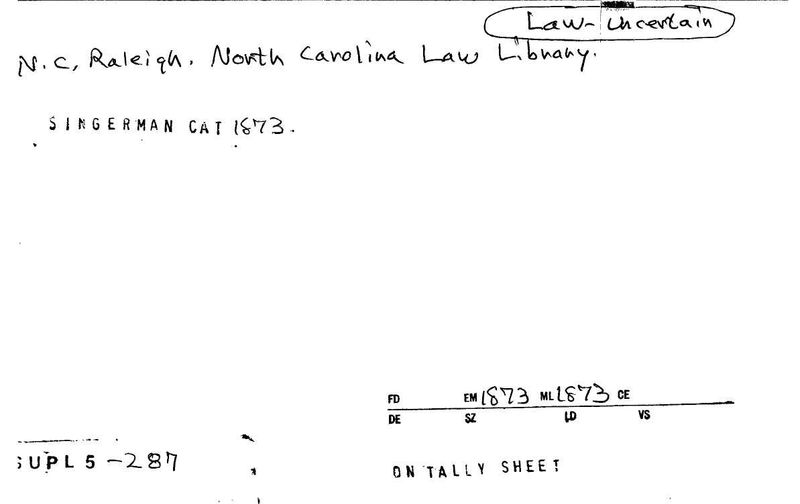 Law-Uncertain
N.C, Raleigh. North Carolina Law Library.
SINGERMAN CAT 1873.
FD EM 1873 ML 1873 CE
DE SZ LD VS
SUPL 5 -287
ON TALLY SHEET